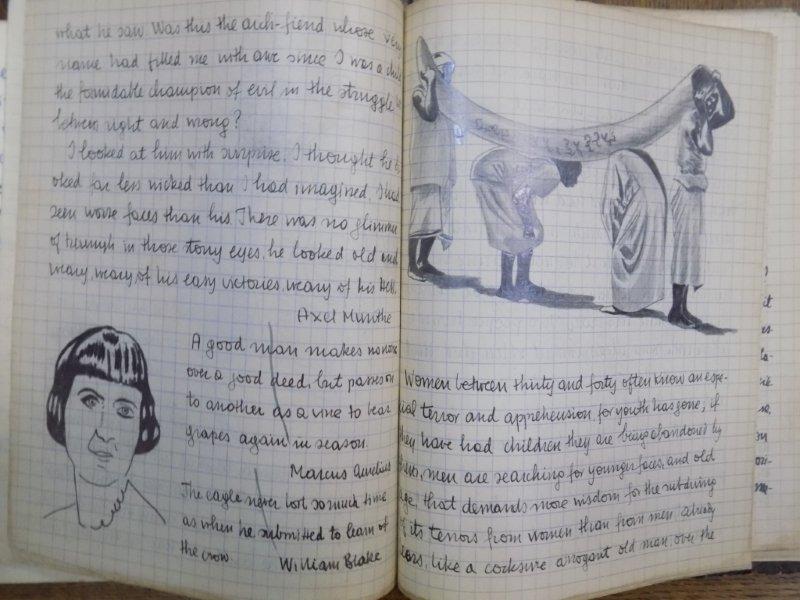 what he saw. Was this the arch-fiend whose very
name had filled me with awe since I was a child
the formidable champion of evil in the struggle
between right and wrong?
I looked at him with surprise. I thought he lo
oked far less wicked than I had imagined. I had
seen worse faces than his. There was no glimmer
of triumph in those stony eyes, he looked old and
weary, weary of his easy victories, weary of his Hell.
Axel Munthe
A good man makes no noise
over a good deed, but passes on
to another as a vine to bear
grapes again in season.
Marcus Aurelius
The eagle never lost so much time
as when he submitted to learn of
the crow.
William Blake
Women between thirty and forty often know an espe-
cial terror and apprehension, for youth has gone; if
they have had children they are being abandoned by
men are searching for younger faces, and old
age, that demands more wisdom for the subduing
of its terrors from women than from men, already
like a corksive arrogant old man, over the